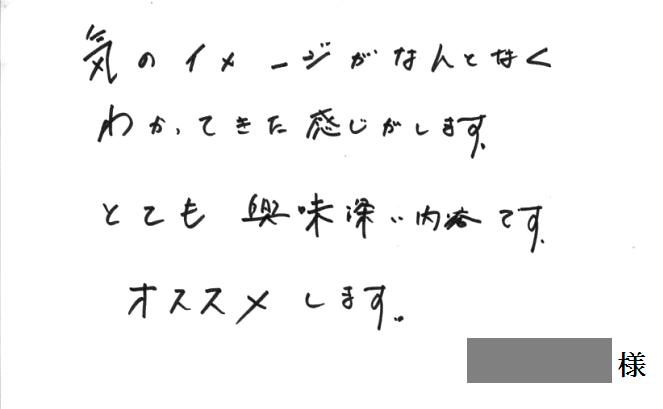 気のイメージがなんとなく
わかってきた感じがします。
とても興味深い内容です。
オススメします。
様